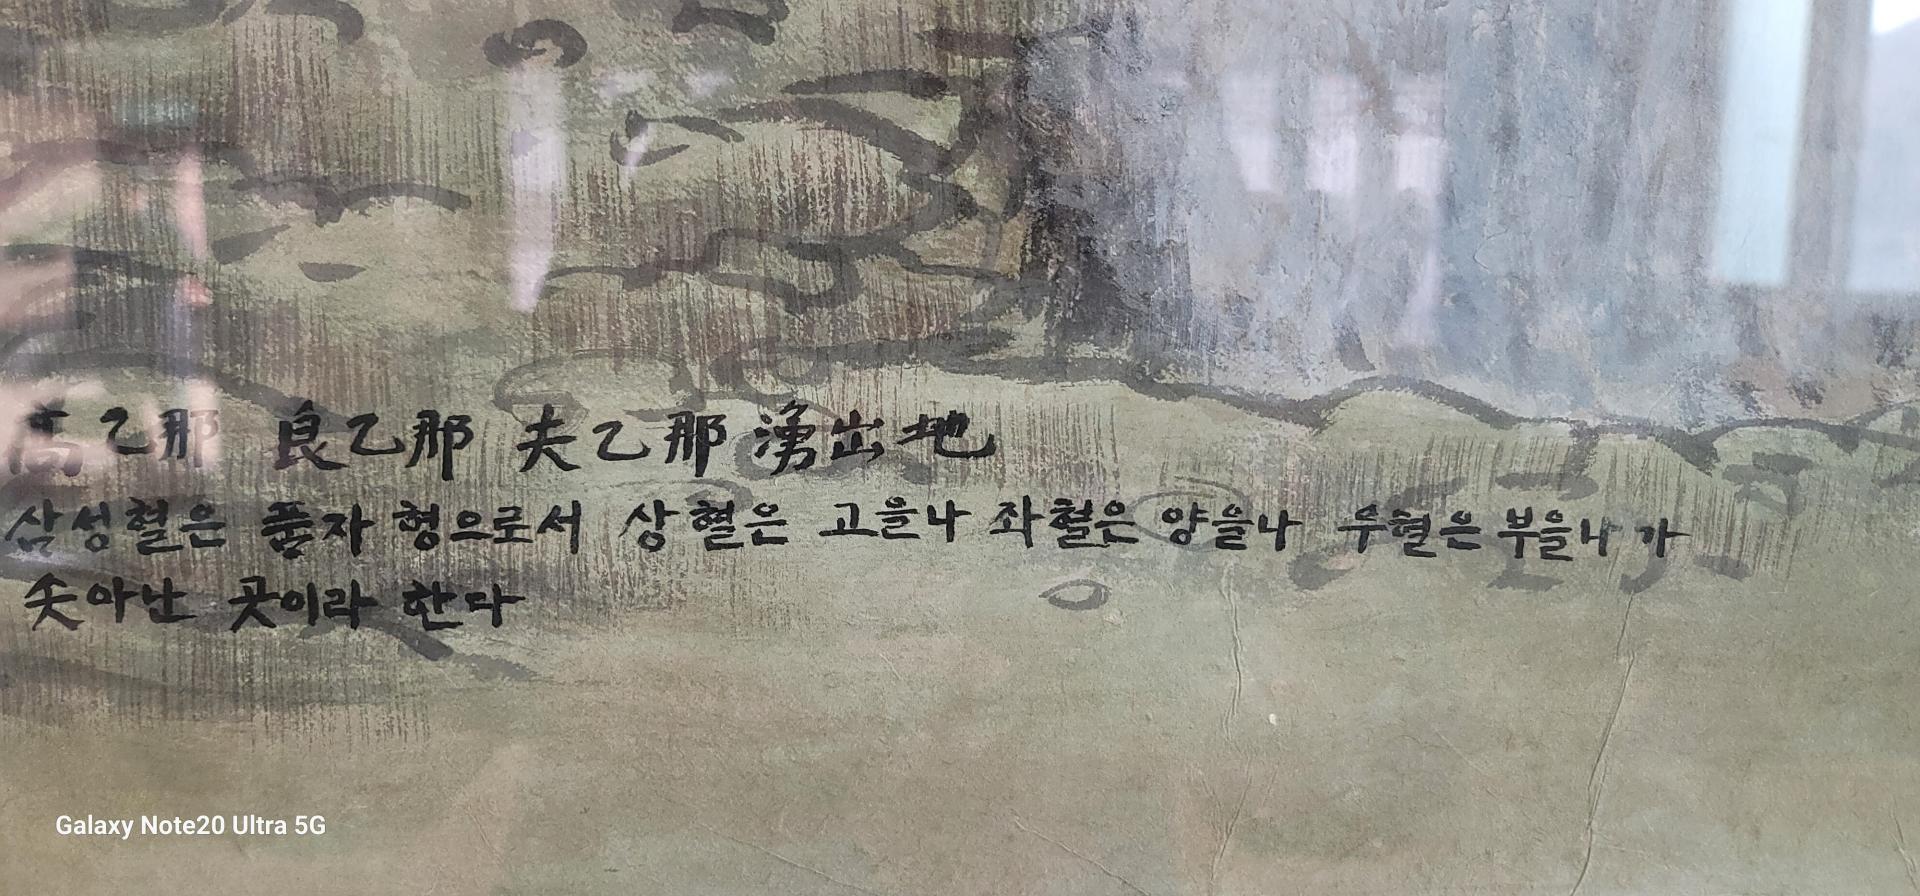 高乙那 良乙那 夫乙那 湧出地
삼성혈은 품자 형으로서 상혈은 고을나 좌혈은 양을나 우혈은 부을나가
솟아난 곳이라 한다
Galaxy Note20 Ultra 5G